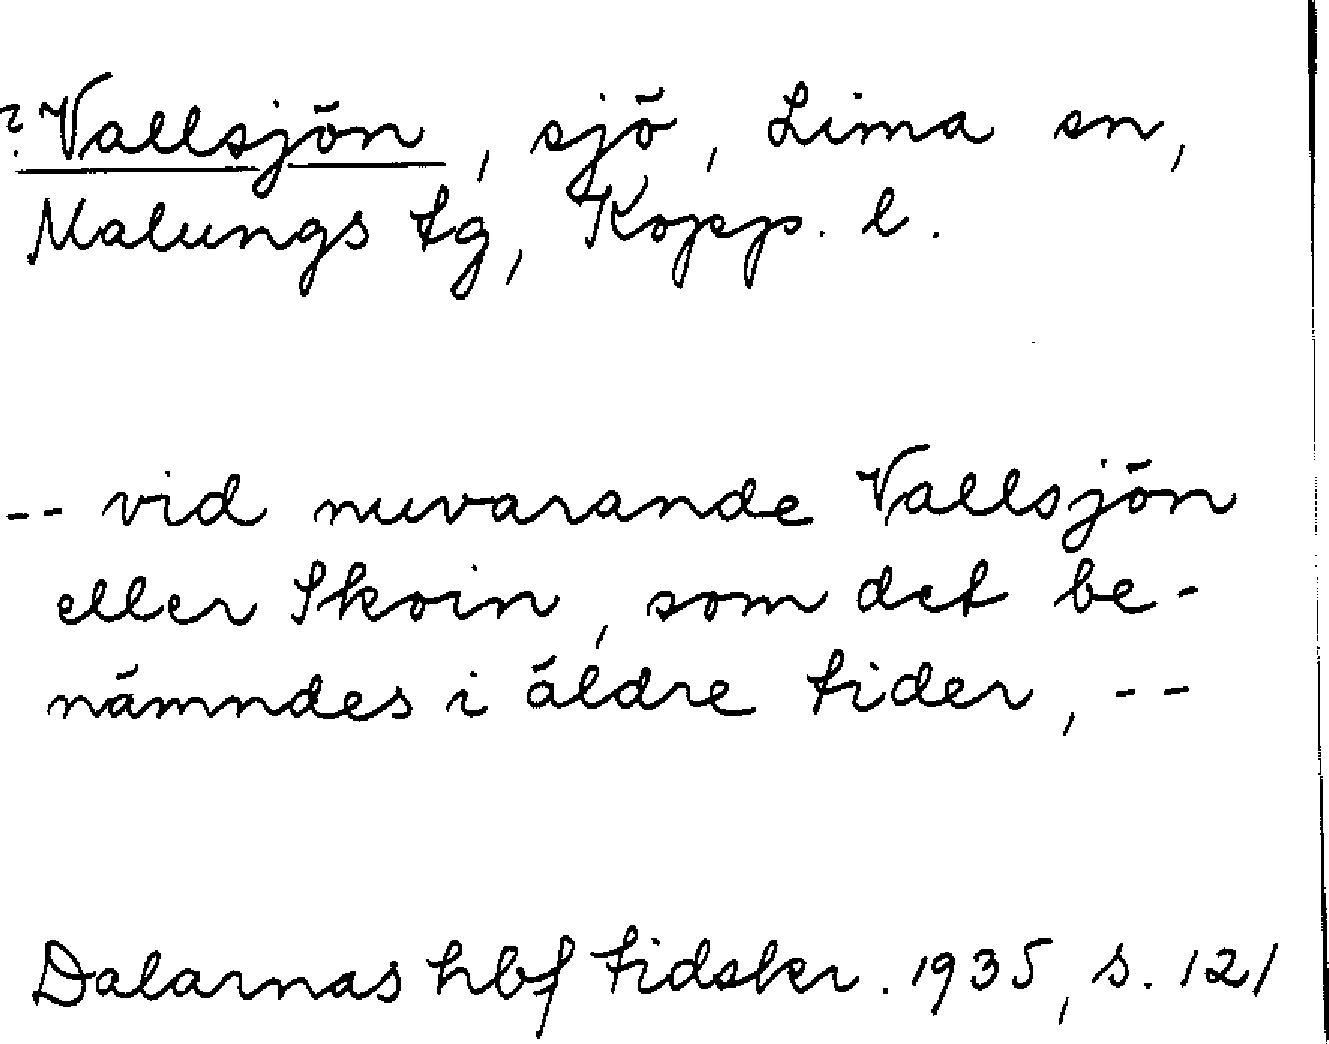 ? Vallsjön, sjö, Lima sn,
Malungs tg, Kopp. l.
-- vid nuvarande Vallsjön
eller Skoin, som det be-
nämndes i äldre tider, --
Dalarnas hbf tidskr. 1935, s. 121